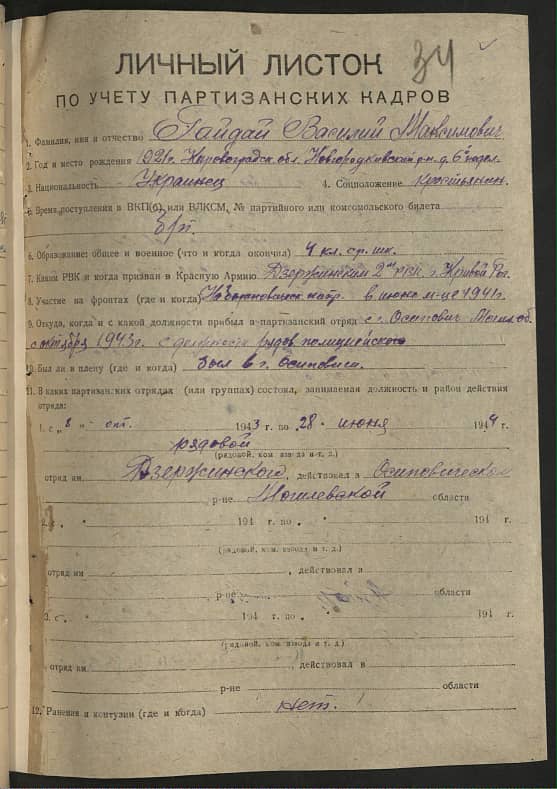 34
ЛИЧНЫЙ ЛИСТОК
ПО УЧЕТУ ПАРТИЗАНСКИХ КАДРОВ
1. Фамилия, имя и отчество Гайдай Василий Максимович
2. Год и место рождения 1921г. Кировоградск. обл.
3. Национальность Украинец 4. Соцположение Крестьянин.
5. Время поступления в ВКП(б) или ВЛКСМ, № партийного или комсомольского билета
б/п.
6. Образование: общее и военное (что и когда окончил) 4 кл. ср. шк.
7. Каким РВК и когда призван в Красную Армию Дзержинским РВК г. Кривой Рог.
8. Участие на фронтах (где и когда) в июне м-це 1941г.
9. Откуда, когда и с какой должности прибыл в партизанский отряд с г. Осипович
с октября 1943г. с должности рядов. полицейского
10. Был ли в плену (где и когда) был в г. Осиповичи.
11. В каких партизанских отрядах (или группах) состоял, занимаемая должность и район действия
отряда:
1. с „8 „ окт. 1943 г. по „28 „ июня 1944 г.
рядовой
(рядовой, ком. взвода и т. д.)
отряд им Дзержинского, действовал в Осиповическом
р-не Могилевской области
2. с „ „ 194 г. по „ „ 194 г.
(рядовой, ком. взвода и т. д.)
отряд им , действовал в
р-не области
3. с „ „ 194 г. по „ „ 194 г.
(рядовой, ком. взвода и т. д.)
отряд им , действовал в
р-не области
12. Ранения и контузии (где и когда) нет.